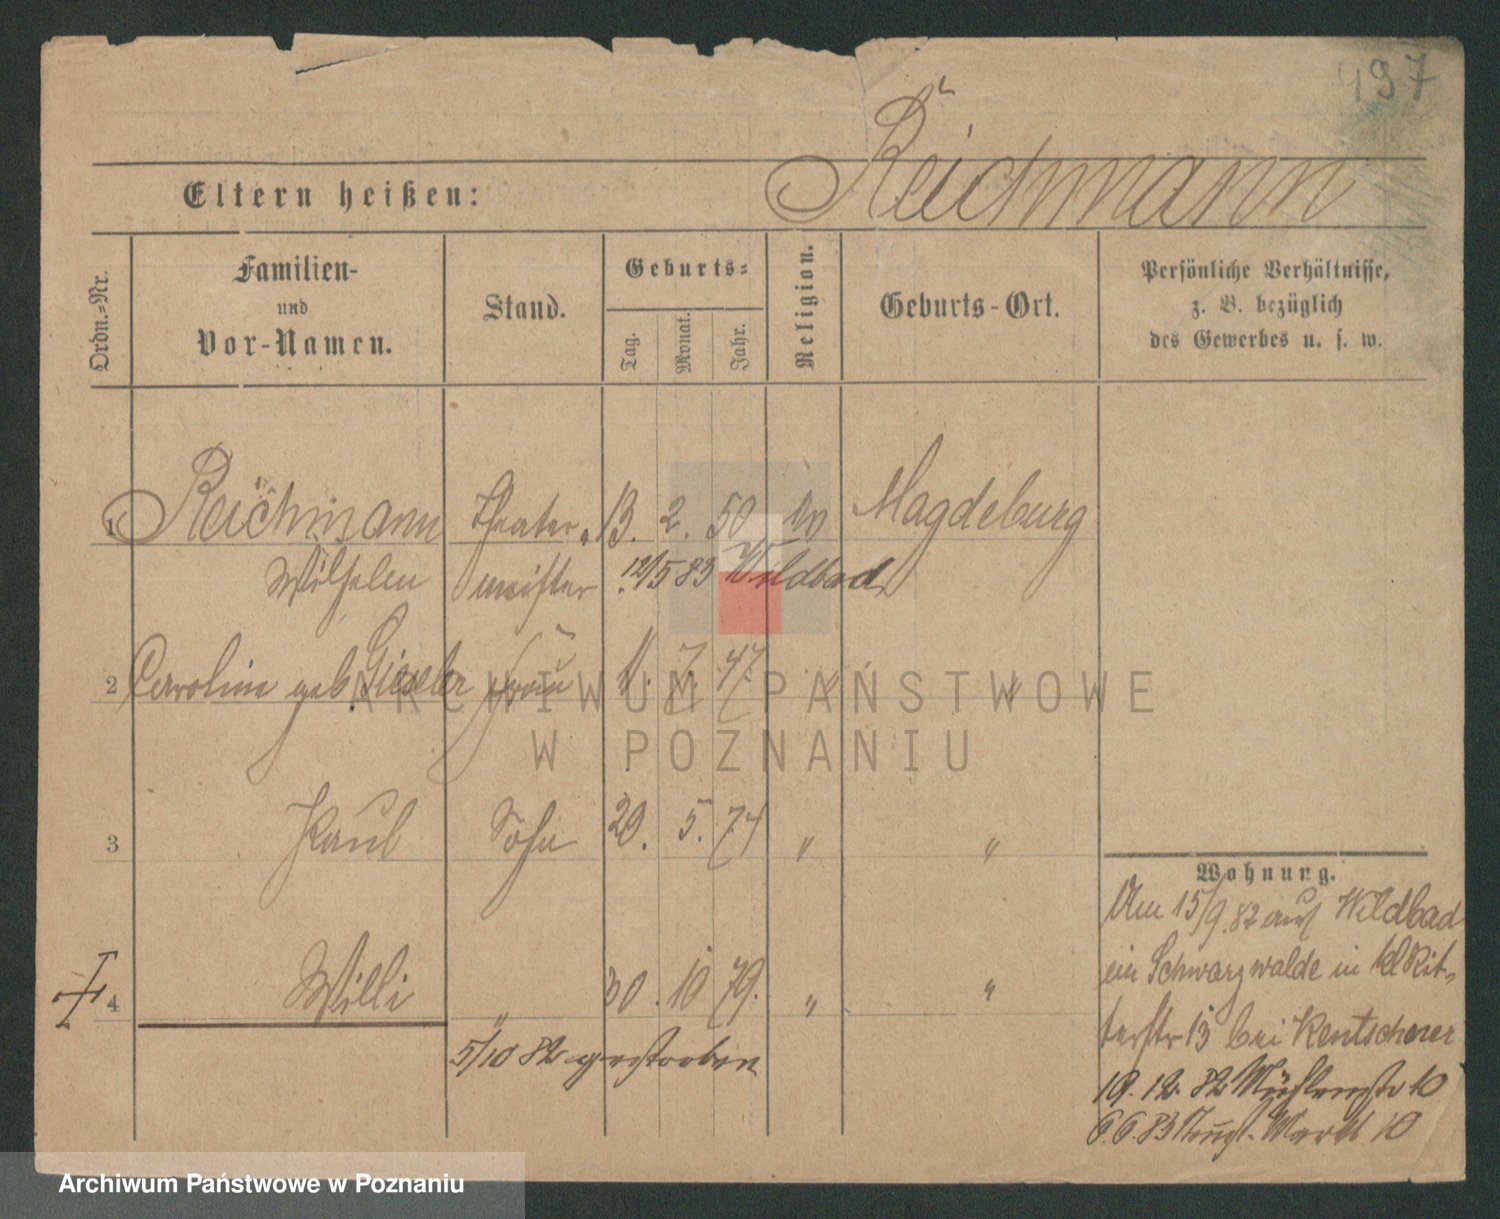 497
Reichmann
Eltern heißen:
Ordn.-Nr.
Familien-
und
Vor-Namen.
Stand.
Geburts-
Tag.
Monat.
Jahr.
Religion.
Geburts-Ort.
Persönliche Verhältnisse,
z. B. bezüglich
des Gewerbes u. s. w.
1 Reichmann Theater- 13. 2. 50 ev Magdeburg
Wilhelm meister 12/5 83 Wildbad
2 Caroline geb Gieseler Frau 11. 7. 47. " "
3 Paul Sohn 20. 5. 74 " "
4 Willi " 30. 10 79. " "
5/10 82 gestorben
Wohnung.
Am 15/9.82 aus Wildbad
im Schwarzwalde in kl Rit-
terstr 13 bei Rentscherer
19. 12. 82 Mühlenstr 10
6.6.83 Markt 10
ARCHIWUM PAŃSTWOWE
W POZNANIU
Archiwum Państwowe w Poznaniu